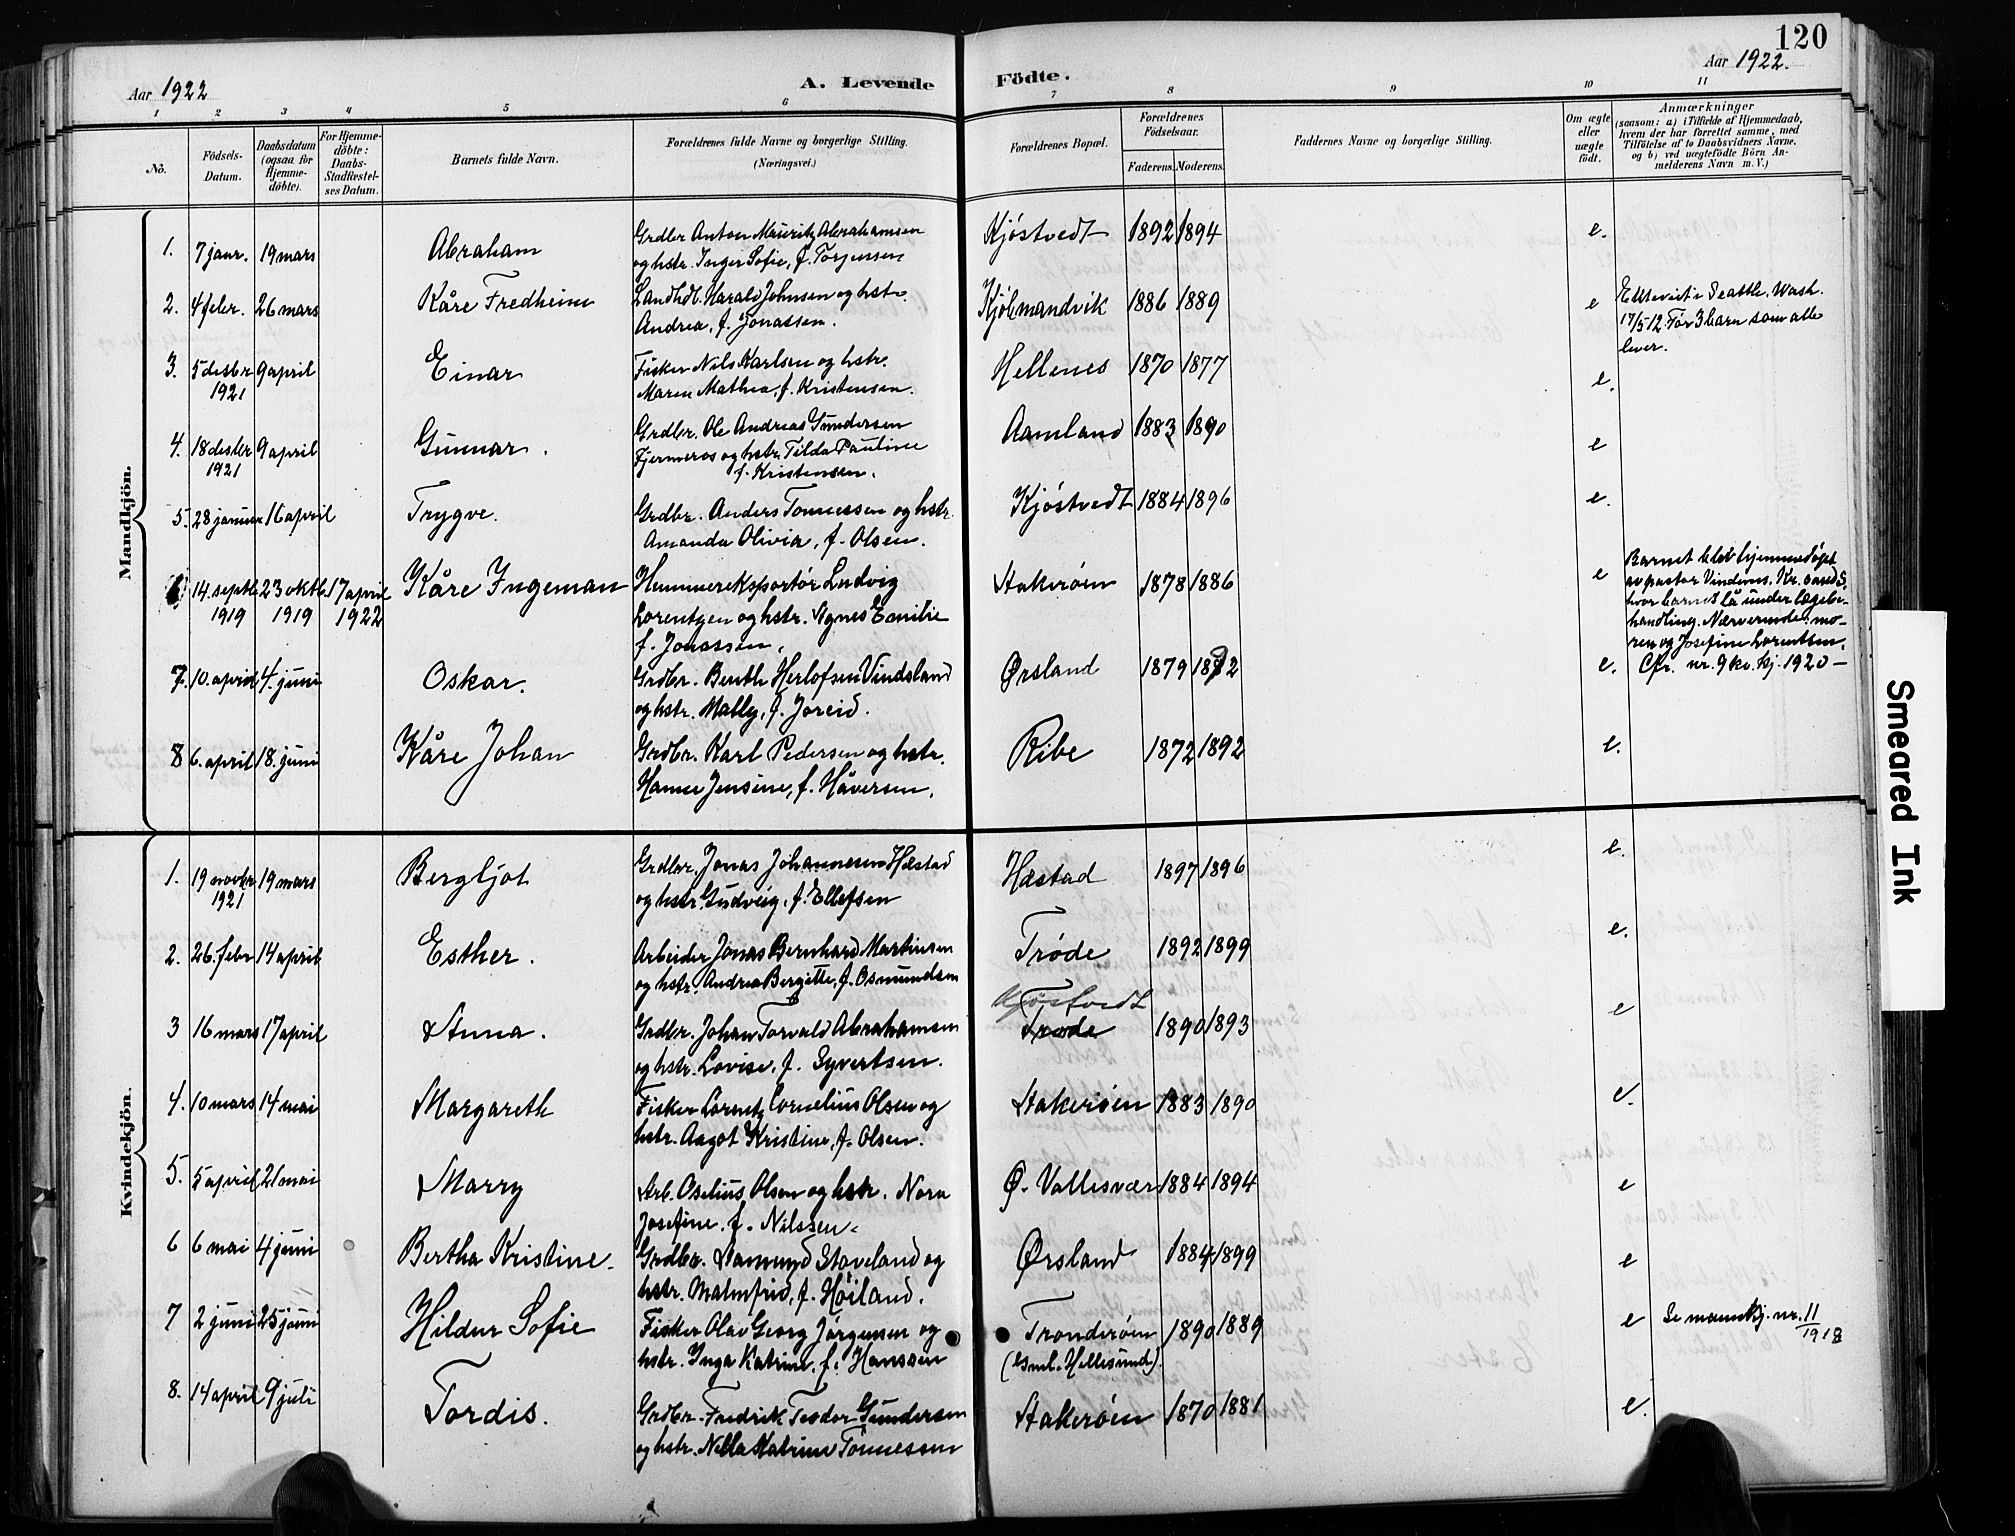 120
Aar 1922
A. Levende
Födte.
Aar 1922.
1 2 3 4 5 6 7 8 9 10 11
No.
Födsels-Datum.
Daabsdatum (ogsaa for Hjemme-döbte).
For Hjemme-döbte: Daabs-Stadfæstel-ses Datum.
Barnets fulde Navn.
Forældrenes fulde Navne og borgerlige Stilling.
(Næringsvei.)
Forældrenes Bopæl.
Forældrenes Födselsaar.
Faderens. Moderens.
Faddernes Navne og borgerlige Stilling.
Om ægte eller uægte født.
Anmærkninger
(saasom: a) i Tilfælde af Hjemmedaab,
hvem der har forrettet samme, med
Tilföielse af to Daabsvidners Navne,
og b) ved uægtefödte Börn An-
melderens Navn m. V.)
Mandkjön.
1. 7 janr. 19 mars Abraham Grdbr Anton Mauritz Abrahamsen Kjöstvedt 1892 1894 e.
og hstr. Inger Sofie, f. Torjussen
2. 4 febr. 26 mars Kåre Fredheim Landhdl. Harald Johnsen og hstr. Kjöbmandvik 1886 1889 e Ektevit i Seattle, Wash.
Andrea, f. Jonassen. 17/5 12. Før 3 barn som alle
lever.
3. 5 desbr 9 april Einar Fisker Nils Karlsen og hstr. Hellenes 1870 1877 e.
1921 Maren Mathea, f. Kristensen.
4. 18 desbr 9 april Gunnar. Grdbr. Ole Andreas Gundersen Aamland 1883 1890 e
1921 Fjermeros og hstr. Tilda Pauline
f. Kristensen.
5. 28 januar 16 april Trygve. Grdbr. Anders Tønnessen og hstr. Kjöstvedt 1884 1896 e.
Amanda Olivia, f. Olsen.
14. septb 23 oktb. 17 april Kåre Ingeman Hummereksportör Ludvig Stakeröen 1878 1886 e Barnet blev hjemmedøpt
1919 1919 1922 Lorentzen og hstr. Agnes Emilie av pastor Vindenes. Kr.sand S.
f. Jonassen. hvor barnet lå under lægebe-
handling. Nærværende: mo-
ren og Josefine Lorentsen.
7. 10. april 4. juni Oskar. Grdbr. Benth Herlofsen Vindsland Ørsland 1879 1892 e. Cfr. nr. 9 kv. kj. 1920 –
og hstr. Mally, f. Joreid.
8 6. april 18. juni Kåre Johan Grdbr. Karl Pedersen og hstr. Ribe 1872 1892 e.
Hanne Jensine, f. Håversen.
Kvindekjön.
1. 19 novbr 19 mars Bergljot Grdbr. Jonas Johannesen Hæstad Hæstad 1897 1896 e.
1921 og hstr. Gudveig, f. Ellefsen
2. 26. febr 14 april Esther. Arbeider Jonas Bernhard Martinsen Trøde 1892 1899 e.
og hstr. Andrea Bergitte, f. Osmundsen
Kjöstvedt
3 16 mars 17 april Anna. Grdbr. Johan Torvald Abrahamsen Trøde 1890 1893 e
og hstr. Lovise, f. Syvertsen.
4. 10 mars 14 mai Margareth Fisker Lorentz Cornelius Olsen og Stakeröen 1883 1890 e.
hstr. Aagot Kristine, f. Olsen.
5. 5 april 21 mai Marry Arb. Oselius Olsen og hstr. Nora Ø. Vallesvær 1884 1894 e
Josefine. f. Nilssen.
6 6 mai 4 juni Bertha Kristine. Grdbr. Aamund Staveland og Ørsland 1884 1899 e
hstr. Malmfrid, f. Höiland.
7 2 juni 25 juni Hildur Sofie Fisker Olav Georg Jørgensen og Tronderöen 1890 1889 e Se mannkj. nr. 11
hstr. Inga Katrine, f. Hanssen (Gml. Hellesund). 1918
8. 14 april 9 juli Tordis. Grdbr. Fredrik Teodor Gundersen Stakeröen 1870 1881 e.
og hstr. Nella Katrine Tønnessen
Smeared Ink